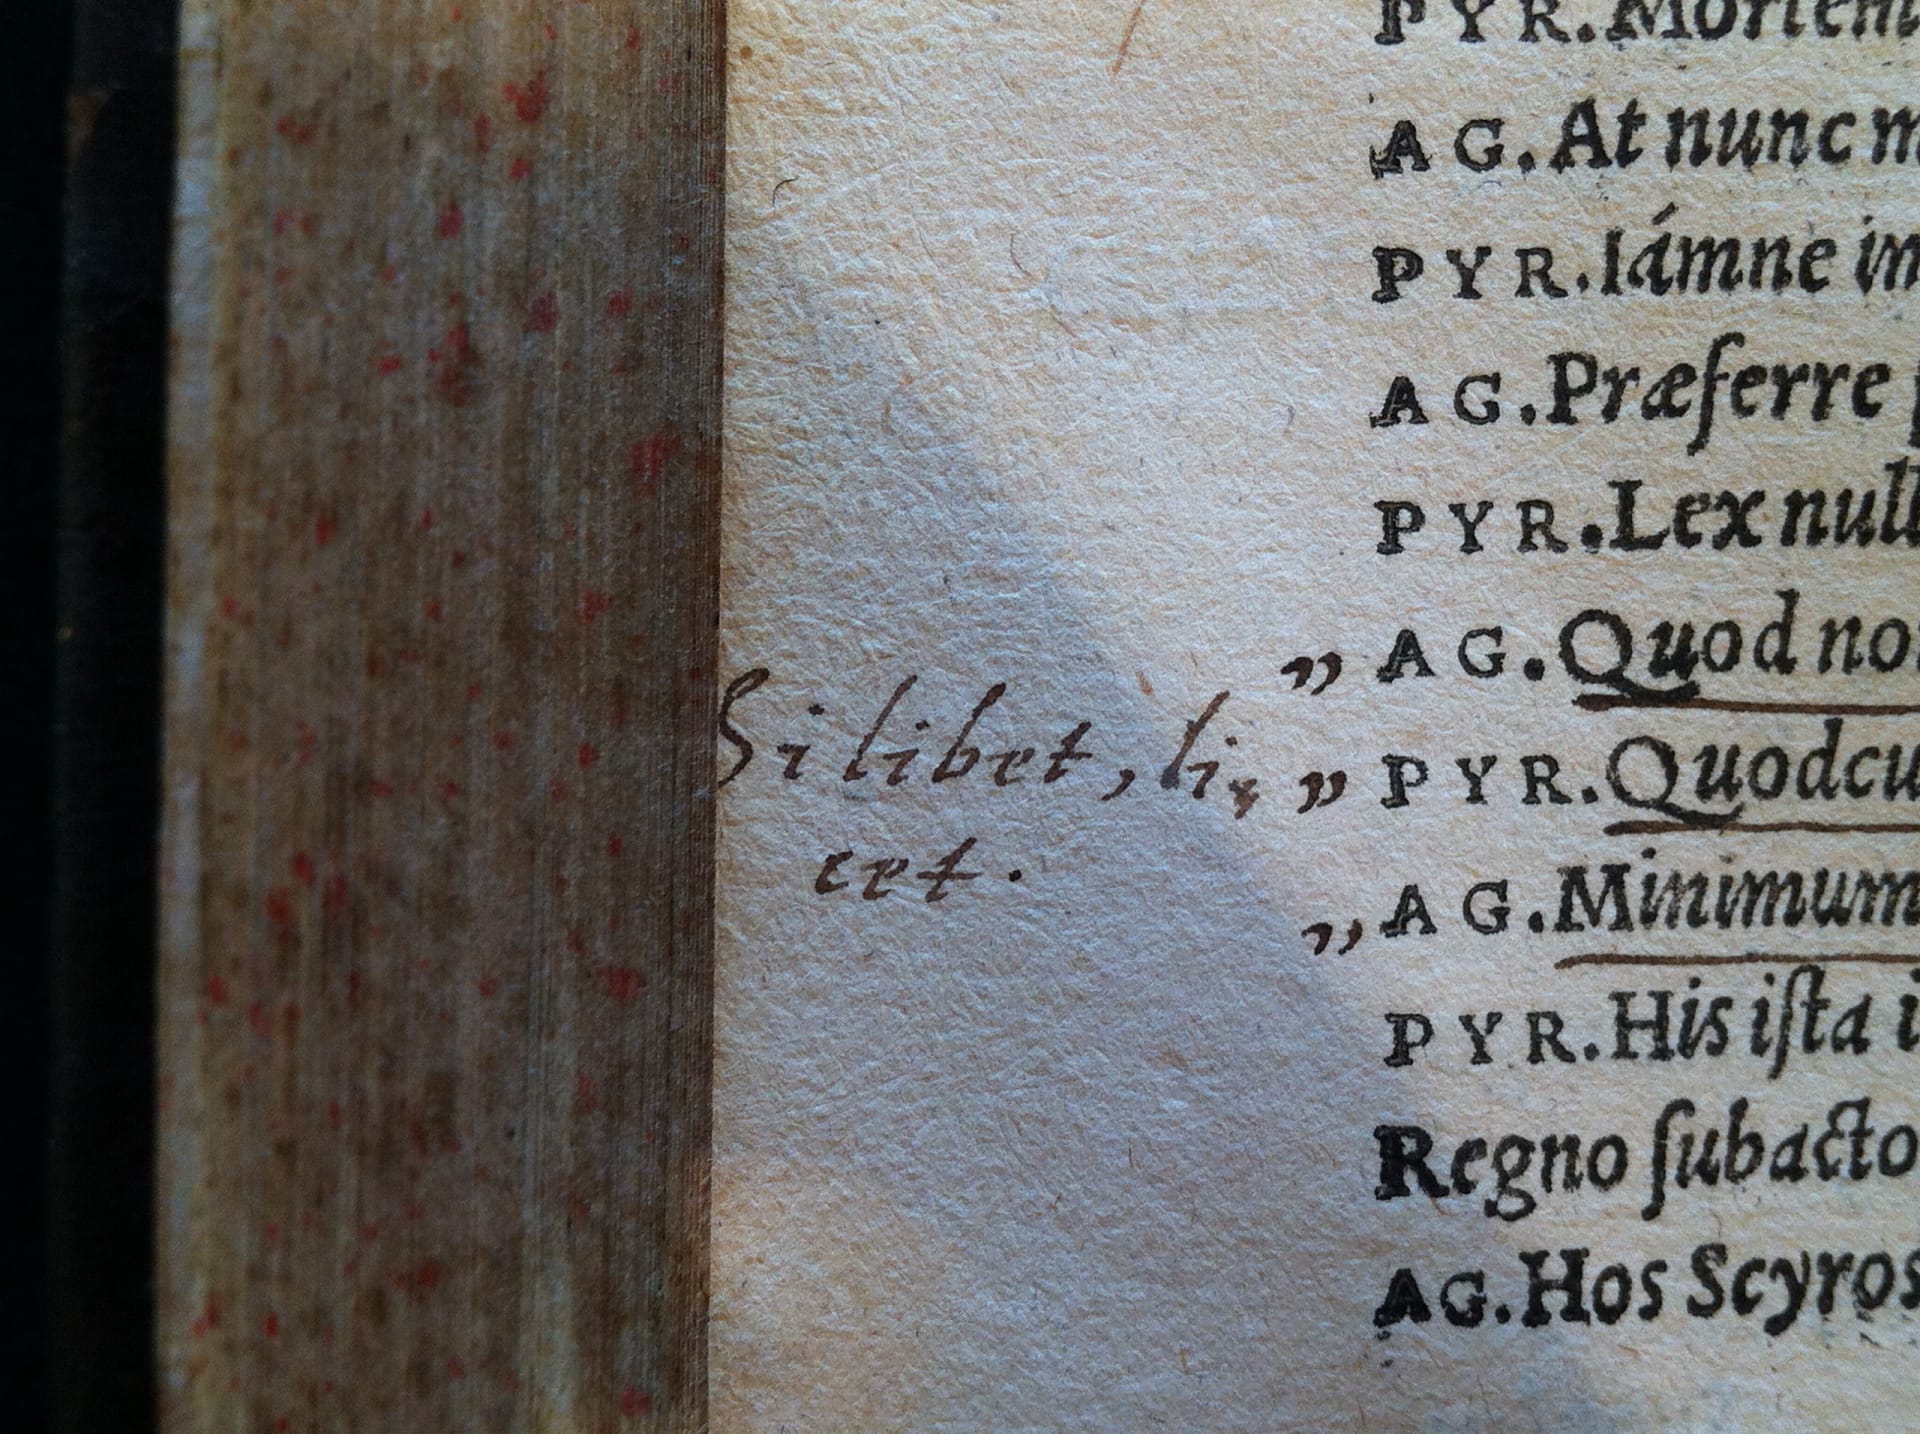 PYR. Mortem
AG. At nunc m
PYR. Iámne im
AG. Præferre
PYR. Lex null
„ AG. Quod no
Si libet, li- „ PYR. Quodcu
cet.
„ AG. Minimum
PYR. His iſta i
Regno ſubacto
AG. Hos Scyros